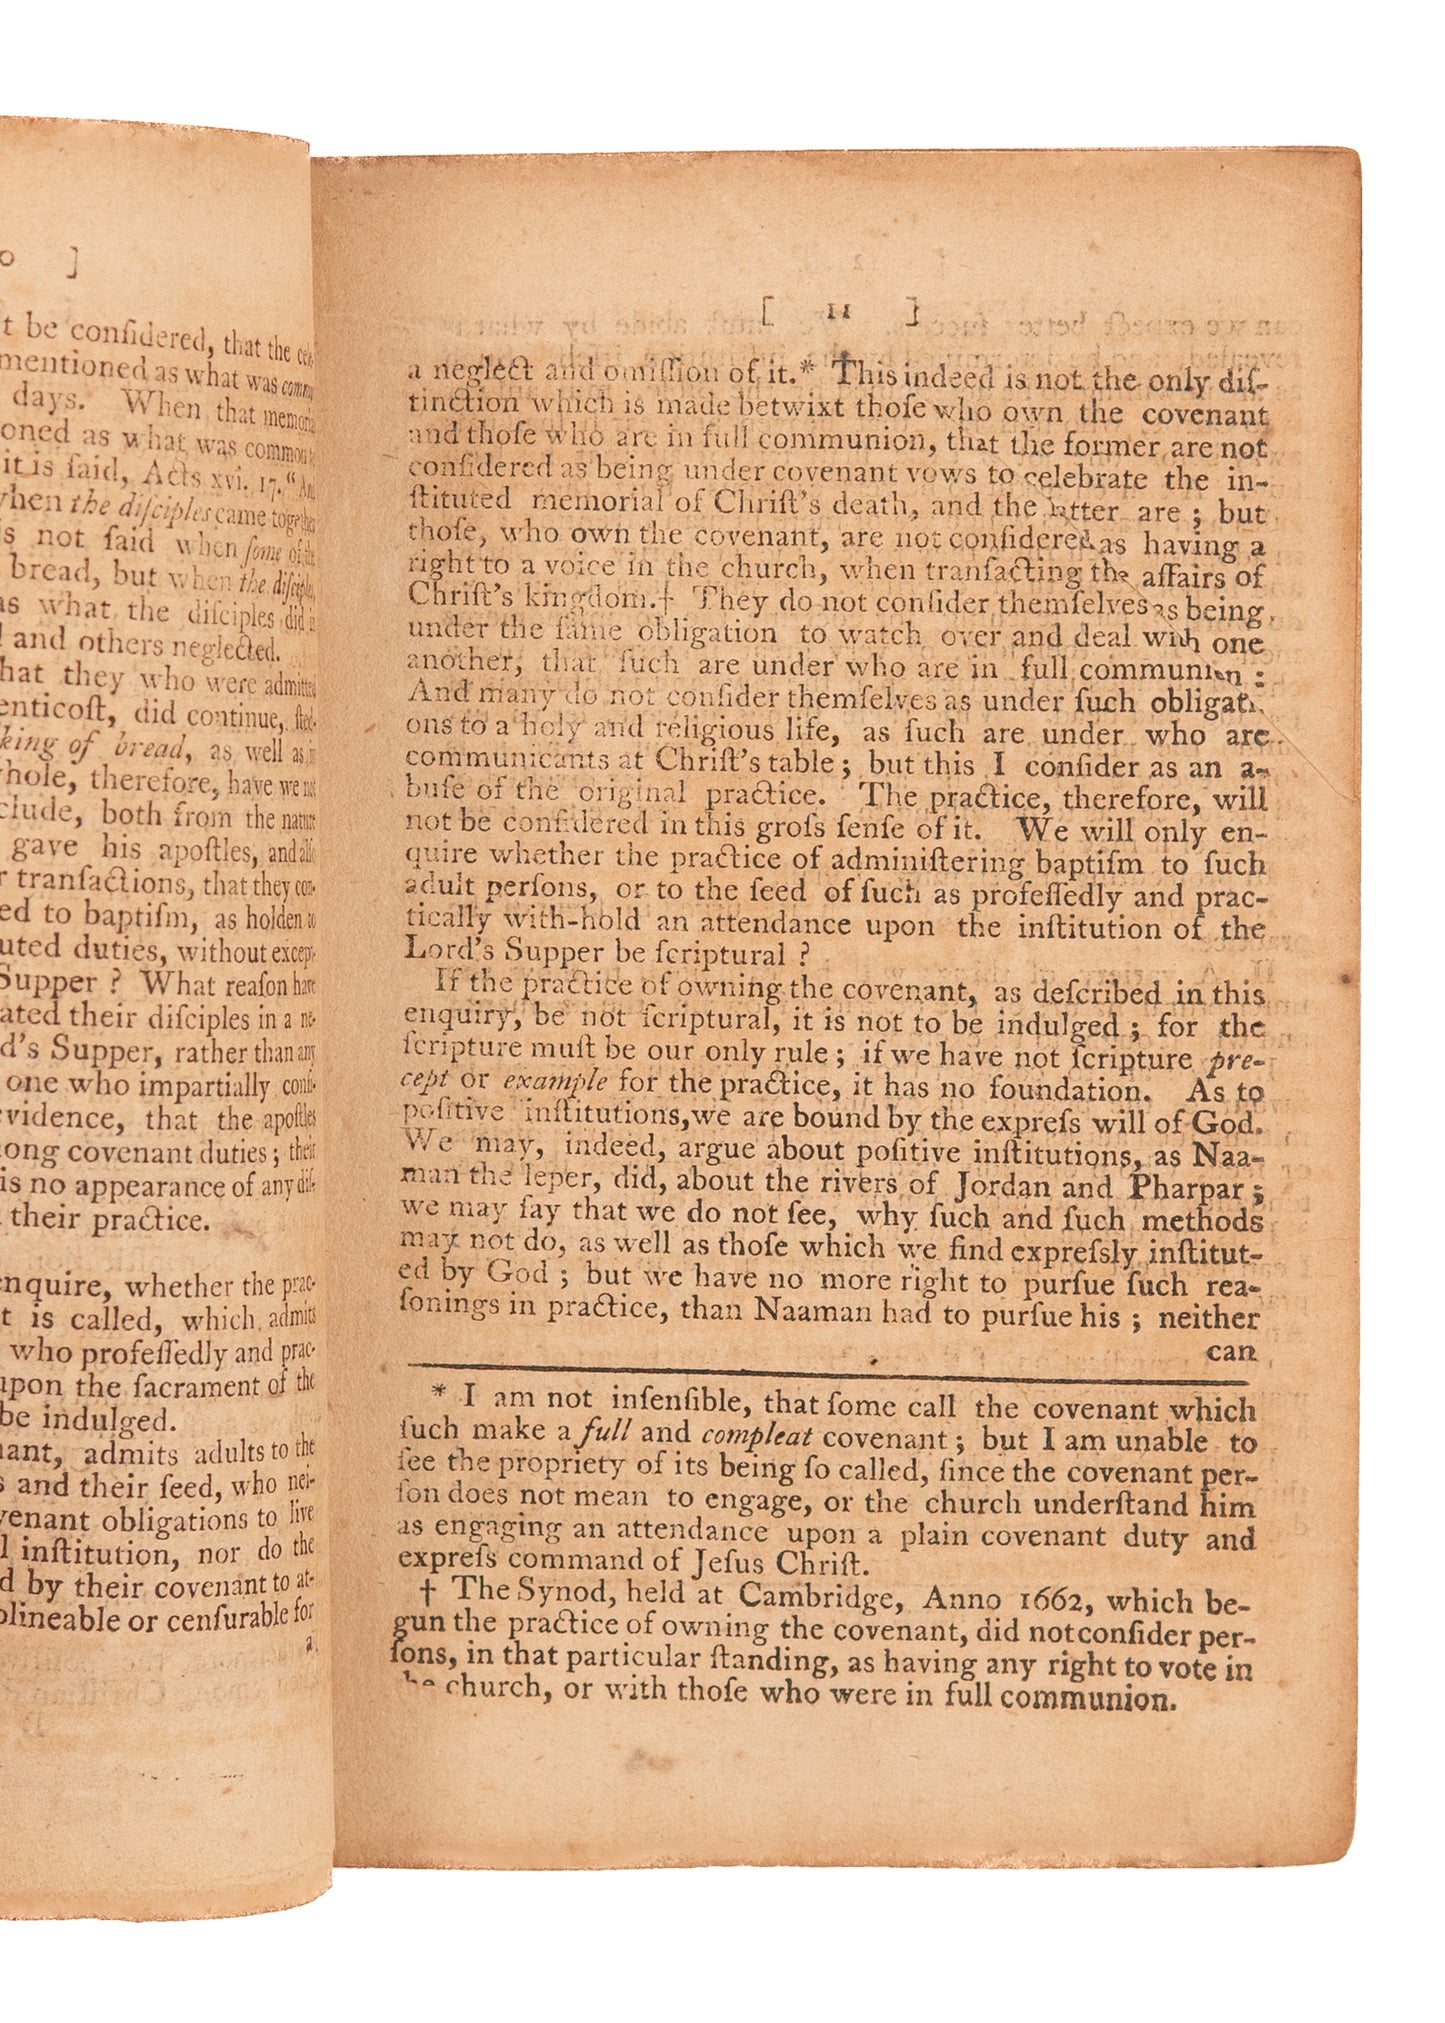 o ]
t be conſidered, that the
mentioned as what was
days. When that
oned as what was common
it is ſaid, Acts xvi. 17. "And
when the diſciples came together
s not ſaid when ſome of the
bread, but when the diſciples
as what the diſciples did
and others neglected.
hat they who were admitted
enticoſt, did continue, ſted-
king of bread, as well as in
hole, therefore, have we not
clude, both from the nature
gave his apoſtles, and alſo
r tranſactions, that they con-
ed to baptiſm, as holden to
uted duties, without excep-
Supper ? What reaſon have
ated their diſciples in a ne-
d's Supper, rather than any
one who impartially conſi-
evidence, that the apoſtles
ong covenant duties ; their
is no appearance of any diſ-
their practice.
enquire, whether the prac-
t is called, which admits
who profeſſedly and prac-
upon the ſacrament of the
be indulged.
nant, admits adults to the
s and their ſeed, who nei-
venant obligations to live
l inſtitution, nor do the
d by their covenant to at-
plineable or cenſurable for
a
[ 11 ]
a neglect and omiſſion of it.* This indeed is not the only diſ-
tinction which is made betwixt thoſe who own the covenant
and thoſe who are in full communion, that the former are not
conſidered as being under covenant vows to celebrate the in-
ſtituted memorial of Chriſt's death, and the latter are ; but
thoſe, who own the covenant, are not conſidered as having a
right to a voice in the church, when tranſacting the affairs of
Chriſt's kingdom.† They do not conſider themſelves as being
under the ſame obligation to watch over and deal with one
another, that ſuch are under who are in full communion :
And many do not conſider themſelves as under ſuch obligati-
ons to a holy and religious life, as ſuch are under who are
communicants at Chriſt's table ; but this I conſider as an a-
buſe of the original practice. The practice, therefore, will
not be conſidered in this groſs ſenſe of it. We will only en-
quire whether the practice of adminiſtering baptiſm to ſuch
adult perſons, or to the ſeed of ſuch as profeſſedly and prac-
tically with-hold an attendance upon the inſtitution of the
Lord's Supper be ſcriptural ?
If the practice of owning the covenant, as deſcribed in this
enquiry, be not ſcriptural, it is not to be indulged ; for the
ſcripture muſt be our only rule ; if we have not ſcripture pre-
cept or example for the practice, it has no foundation. As to
poſitive inſtitutions, we are bound by the expreſs will of God.
We may, indeed, argue about poſitive inſtitutions, as Naa-
man the leper, did, about the rivers of Jordan and Pharpar ;
we may ſay that we do not ſee, why ſuch and ſuch methods
may not do, as well as thoſe which we find expreſsly inſtitut-
ed by God ; but we have no more right to purſue ſuch rea-
ſonings in practice, than Naaman had to purſue his ; neither
can
* I am not inſenſible, that ſome call the covenant which
ſuch make a full and compleat covenant ; but I am unable to
ſee the propriety of its being ſo called, ſince the covenant per-
ſon does not mean to engage, or the church underſtand him
as engaging an attendance upon a plain covenant duty and
expreſs command of Jeſus Chriſt.
† The Synod, held at Cambridge, Anno 1662, which be-
gun the practice of owning the covenant, did not conſider per-
ſons, in that particular ſtanding, as having any right to vote in
the church, or with thoſe who were in full communion.